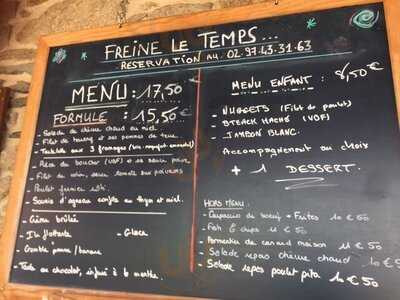 FREINE LE TEMPS...
RESERVATION AU 02.97.43.31.63
MENU : 17,50
FORMULE : 15,50€
- Salade de chèvre chaud au miel
- Filet de et ses pommes de terre
- Tartelette aux 3 fromages
- Pièce du boucher (VBF) et sa sauce poivre
- Filet de
- Poulet fermier rôti
- Souris d'agneau confite au thym et miel.
- Crème brûlée
- Ile flottante
- Glace
- Crumble pomme/banane
- Tarte au chocolat, infusé à la menthe.
MENU ENFANT : 8,50€
- NUGGETS (Filet de poulet)
- STEACK HACHÉ (VBF)
- JAMBON BLANC.
Accompagnement au choix
+ 1 DESSERT.
HORS MENU :
- Carpaccio de boeuf + Frites 10€50
- Fish & chips 11€50
- Parmentier de canard maison 11€50
- Salade repas chèvre chaud
- Salade repas poulet pita 10€50